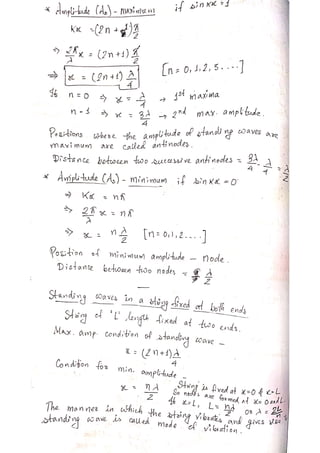 * Amplitude (As) - maximum if sin kx = 1
Kx = (2n + 1) π/2
⇒ 2π/λ x = (2n+1) π/2
⇒ x = (2n+1) λ/4 [n = 0, 1, 2, 5 ....]
If n = 0 ⇒ x = λ/4 → 1st maxima
n = 1 ⇒ x = 3λ/4 → 2nd max. amplitude.
Positions where the amplitude of standing waves are
maximum are called antinodes.
Distance between two successive antinodes = 3λ/4 - λ/4 = λ/2
* Amplitude (As) - minimum if sin kx = 0
⇒ Kx = nπ
⇒ 2π/λ x = nπ
⇒ x = n λ/2 [n = 0, 1, 2 ....]
Position of minimum amplitude - node.
Distance between two nodes = λ/2
Standing waves in a string fixed at both ends
String of 'L' length fixed at two ends.
Max. amp condition of standing wave -
x = (2n+1) λ/4
Condition for min. amplitude -
x = nλ/2 String is fixed at x=0 & x=L
So nodes are formed at x=0 and L
If x=L, L = nλ/2 or λ = 2L/n
The manner in which the string vibrates and gives
standing wave is called mode of vibration.